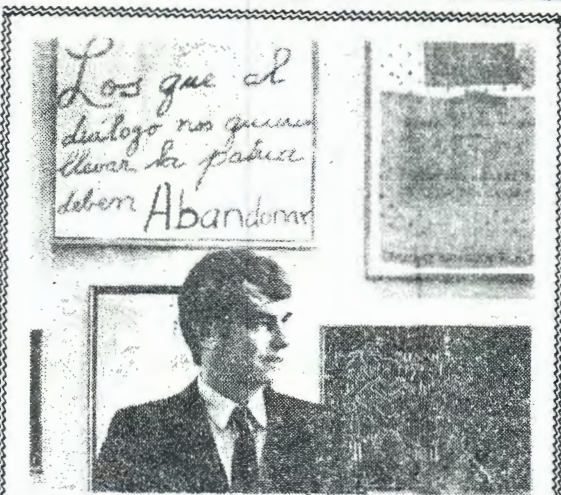 Los que al
diálogo nos quieren
llevar la patria
deben Abandonar